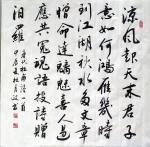 涼風起天末君子
意如何鴻雁幾時
到江湖秋水多文章
憎命達魑魅喜人過
應共冤魂語投詩贈
汨羅
唐代杜甫詩一首